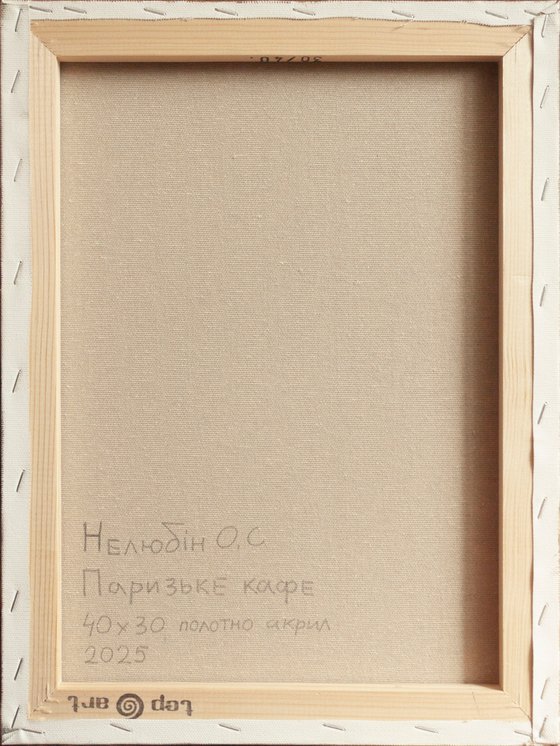 30/40.
Нелюбін О.С
Паризьке кафе
40х30 полотно акрил
2025